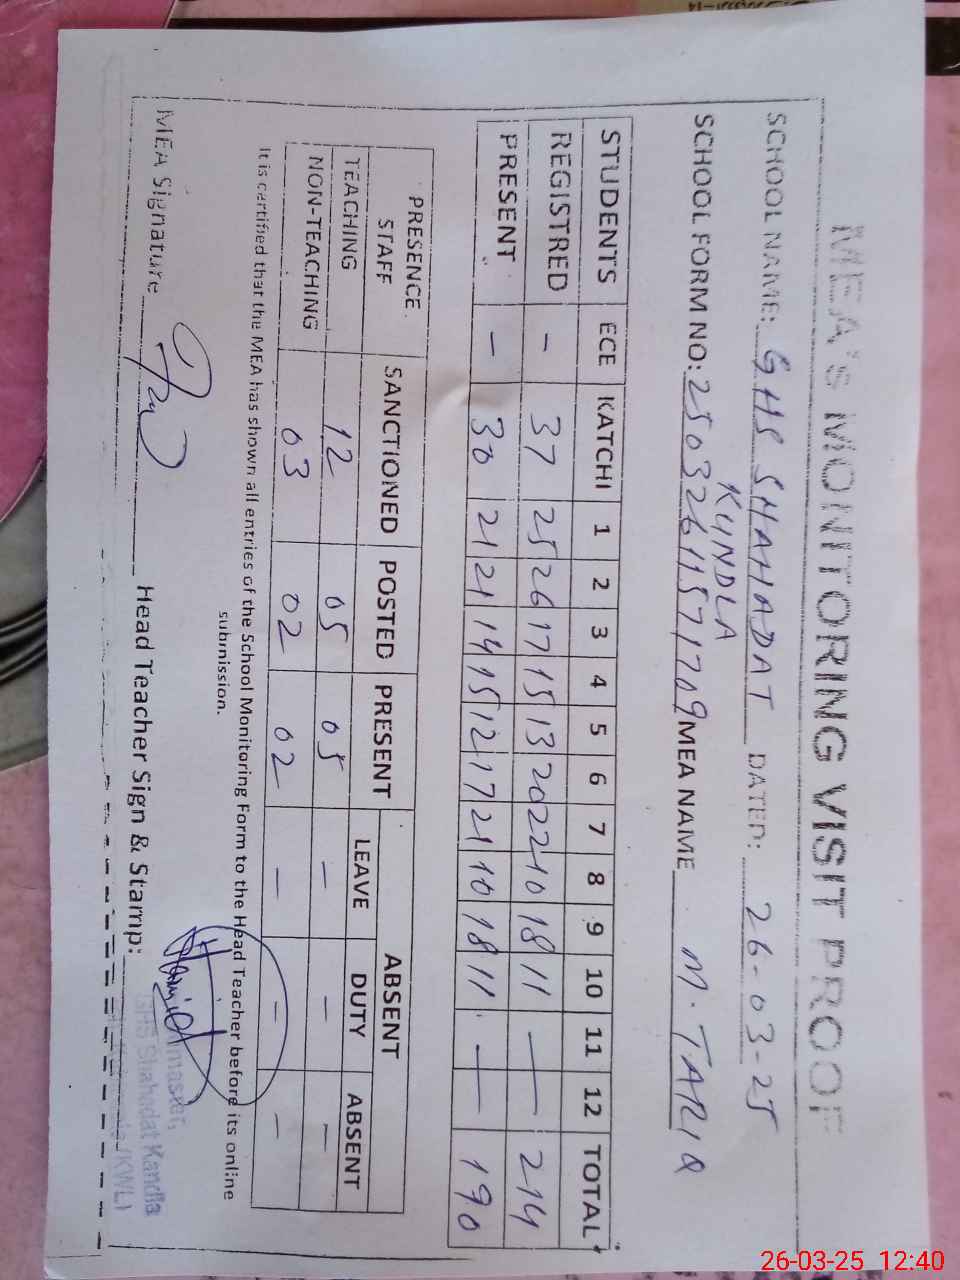 MEA'S MONITORING VISIT PROOF
SCHOOL NAME: GHS SHAHADAT DATED: 26-03-25
KUNDLA
SCHOOL FORM NO: 25032611571709 MEA NAME M. TARIQ
STUDENTS ECE KATCHI 1 2 3 4 5 6 7 8 9 10 11 12 TOTAL
REGISTRED - 37 25 26 17 15 13 20 22 10 18 11 — 214
PRESENT - 30 21 21 14 15 12 17 21 10 18 11 — 190
PRESENCE STAFF SANCTIONED POSTED PRESENT ABSENT
LEAVE DUTY ABSENT
TEACHING 12 05 05 - - -
NON-TEACHING 03 02 02 - - -
It is certified that the MEA has shown all entries of the School Monitoring Form to the Head Teacher before its online
submission.
MEA Signature Head Teacher Sign & Stamp:
GHS Shahadat Kandla
(KWL)
26-03-25 12:40